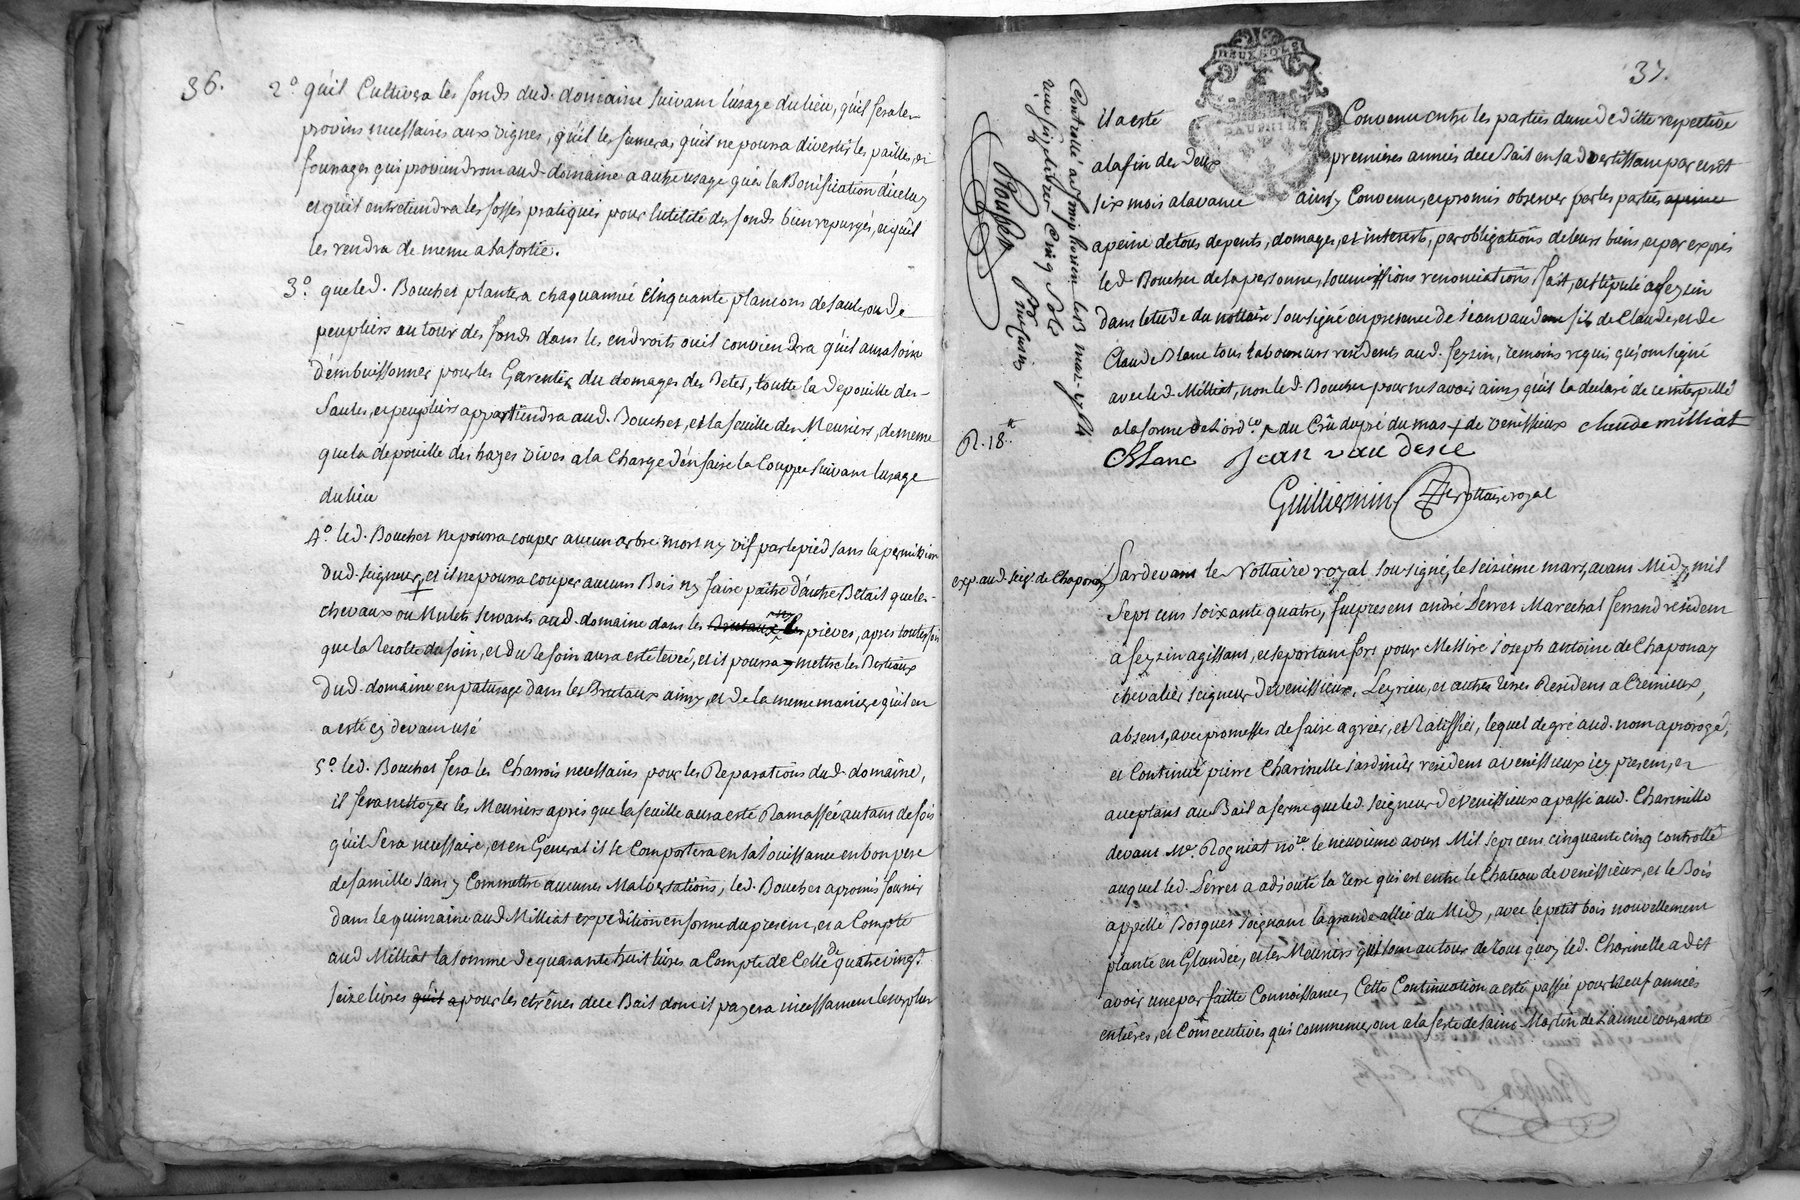 36.
2.° qu'il Cultivera les fonds dud. domaine suivant l'usage du lieu, qu'il fera les
provins necessaires aux vignes, qu'il les fumera, qu'il ne pourra divertir les pailles, et
fourages qui proviendront aud. domaine a autre usage qu'a la Bonification d'iceluy
et qu'il entretiendra les fossés pratiqués pour l'utilité des fonds bien repurgés, et qu'il
les rendra de meme a la sortie.
3.° que led. Bouchet plantera chaqu'année cinquante plançons de saule, ou de
peupliers autour des fonds dans les endroits ou il conviendra qu'il aura soin
d'embuissonner pour les Garentir du domages des Betes, toutte la depouille des
saules, et peupliers appartiendra aud. Bouchet, et la feuille des Meuriers, de meme
que la depouille des hayes vives a la Charge d'en faire la Couppe suivant l'usage
du lieu
4.° led. Bouchet ne pourra couper aucun arbre mort ny vif par le pied sans la permission
dud. seigneur, et il ne pourra couper aucuns Bois ny faire paitre d'autre Betail que les
chevaux ou Mulets servants aud. domaine dans les pieves, apres touttefois
que la Recolte du foin, et du Refoin aura esté levée, et il pourra mettre les Bestiaux
dud. domaine en paturage dans les Brutaux ainsy, et de la meme maniere qu'il en
a esté cy devant usé
5.° led. Bouchet fera les Charrois necessaires pour les Reparations dud. domaine,
il fera nettoyer les Meuriers apres que la feuille aura esté Ramassée autant de fois
qu'il sera necessaire, et en General il se Comportera en sa jouissance en bon pere
de famille sans y Commettre aucunes Malversations, led. Bouchet a promis fournir
dans la quinzaine aud. Milliat expedition en forme du present, et a Compté
aud. Milliat la somme de quarante huit livres a Compte de Celle de quatre vingt
seize livres qu'il a pour les etrênes de ce Bail dont il payera incessament le surplus
37.
DEUX SOLS
DAUPHINÉ
il a esté Convenu entre les parties d'une deditte respective
a la fin des Deux premieres années de ce Bail en s'advertissant par ecrit
six mois a l'avance ainsy Convenu, et promis observer par les parties apeine
a peine de tous depents, domages, et interests, par obligations de leurs biens, et par exprés
led. Bouchet de sa personne, soumissions renonciations, fait, et stipulé a feyzin
dans l'etude du nottaire soussigné en presence de jean vaudene fils de Claude, et de
Claude Blanc tous laboureurs residents aud. feyzin, temoins requis qui ont signé
avec led. Milliat, non led. Bouchet pour ne savoir ainsy qu'il la declaré de ce interpellé
a la forme de L'ord.ce + du Crû du pré du mas + de venissieux claude milliat
CBlanc jean vaudene
Guilliermin Nottaire royal
Controllé a le mars 1764
Cinq sols
R. 18.
exp. aud. seig.r de Chaponay
Pardevant le Nottaire royal soussigné, le seizieme mars, avant Midy, mil
sept cens soixante quatre, fut present andré Serret Marechal ferrand resident
a feyzin agissant, et se portant fort pour Messire joseph antoine de Chaponay
chevalier seigneur de venissieux, Leyrieu, et autres terres Resident a Cremieux,
absent, avec promesses de faire agréer, et Ratiffier, lequel de gré aud. nom a prorogé,
et Continué pierre Charinelle jardinier resident a venissieux icy present, et
acceptant au Bail a ferme que led. seigneur de venissieux a passé aud. Charinelle
devant M.e Rogniat no.re le neuvieme avril Mil sept cens cinquante cinq controllé
auquel led. Serret a adjouté la terre qui est entre le Chateau de venissieux, et le Bois
appellé Bosquet joignant la grande allée du Midy, avec le petit bois nouvellement
planté en Glandée, et les Meuriers qui sont autour de tous quoy led. Charinelle a dit
avoir une parfaitte Connoissance, Cette Continuation a esté passée pour Neuf années
entieres, et Consecutives qui commenceront a la feste de saint Martin de L'année courante